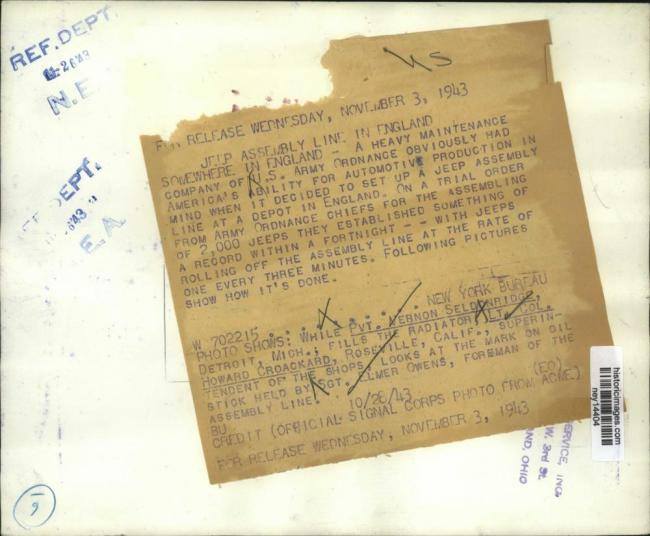 REF. DEPT.
N.E
US
FOR RELEASE WEDNESDAY, NOVEMBER 3, 1943
JEEP ASSEMBLY LINE IN ENGLAND
SOMEWHERE IN ENGLAND - A HEAVY MAINTENANCE
COMPANY OF U.S. ARMY ORDNANCE OBVIOUSLY HAD
AMERICA'S ABILITY FOR AUTOMOTIVE PRODUCTION IN
MIND WHEN IT DECIDED TO SET UP A JEEP ASSEMBLY
LINE AT A DEPOT IN ENGLAND. ON A TRIAL ORDER
FROM ARMY ORDNANCE CHIEFS FOR THE ASSEMBLING
OF 2,000 JEEPS THEY ESTABLISHED SOMETHING OF
A RECORD WITHIN A FORTNIGHT -- WITH JEEPS
ROLLING OFF THE ASSEMBLY LINE AT THE RATE OF
ONE EVERY THREE MINUTES. FOLLOWING PICTURES
SHOW HOW IT'S DONE.
W 702215 . . . . . . . . . . NEW YORK BUREAU
PHOTO SHOWS: WHILE PVT. VERNON SELDENRIDGE,
DETROIT, MICH., FILLS THE RADIATOR, LT. COL.
HOWARD CROACKARD, ROSEVILLE, CALIF., SUPERIN-
TENDENT OF THE SHOPS, LOOKS AT THE MARK ON OIL
STICK HELD BY SGT. ELMER OWENS, FOREMAN OF THE
ASSEMBLY LINE.
BU 10/26/43 (EO)
CREDIT (OFFICIAL SIGNAL CORPS PHOTO FROM ACME)
FOR RELEASE WEDNESDAY, NOVEMBER 3, 1943
DEPT.
E.A.
SERVICE, INC.
W. 3rd St.
ND, OHIO
historicimages.com
ney14404